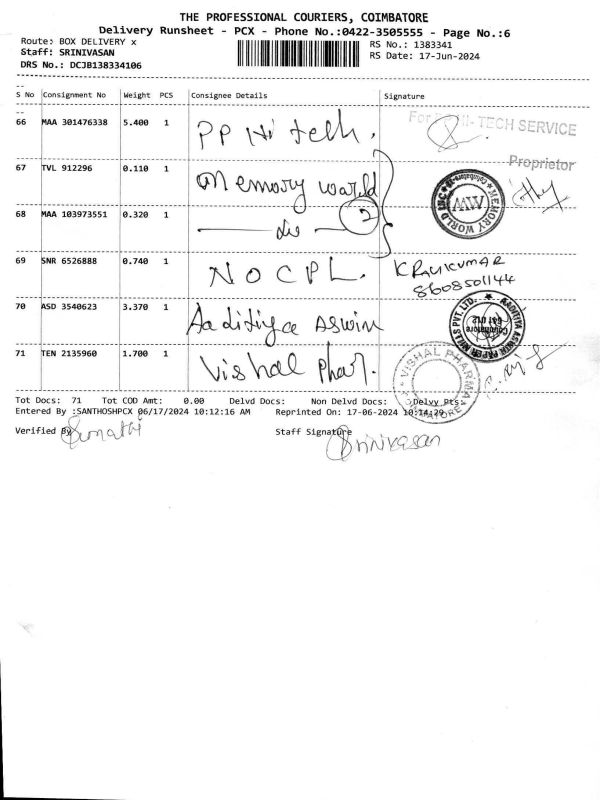 THE PROFESSIONAL COURIERS, COIMBATORE
Delivery Runsheet - PCX - Phone No.:0422-3505555 - Page No.:6
Route: BOX DELIVERY x
RS No.: 1383341
Staff: SRINIVASAN
RS Date: 17-Jun-2024
DRS No.: DCJB138334106
S No Consignment No Weight PCS Consignee Details Signature
66 MAA 301476338 5.400 1 PP Hi tech.
TECH SERVICE
Proprietor
67 TVL 912296 0.110 1 Memory world
MEMORY WORLD INC
MW
68 MAA 103973551 0.320 1 do 2
69 SNR 6526888 0.740 1 NOCPL. K RAVIKUMAR
8608501144
70 ASD 3540623 3.370 1 Aaditiya Aswin
AADITIYA ASWIN PAPER MILLS PVT. LTD.
71 TEN 2135960 1.700 1 Vishal Phar.
VISHAL PHARMA
COIMBATORE
Tot Docs: 71 Tot COD Amt: 0.00 Delvd Docs: Non Delvd Docs: Delvy Pts:
Entered By :SANTHOSHPCX 06/17/2024 10:12:16 AM Reprinted On: 17-06-2024 10:14:29
Verified By Sumathi Staff Signature Srinivasan